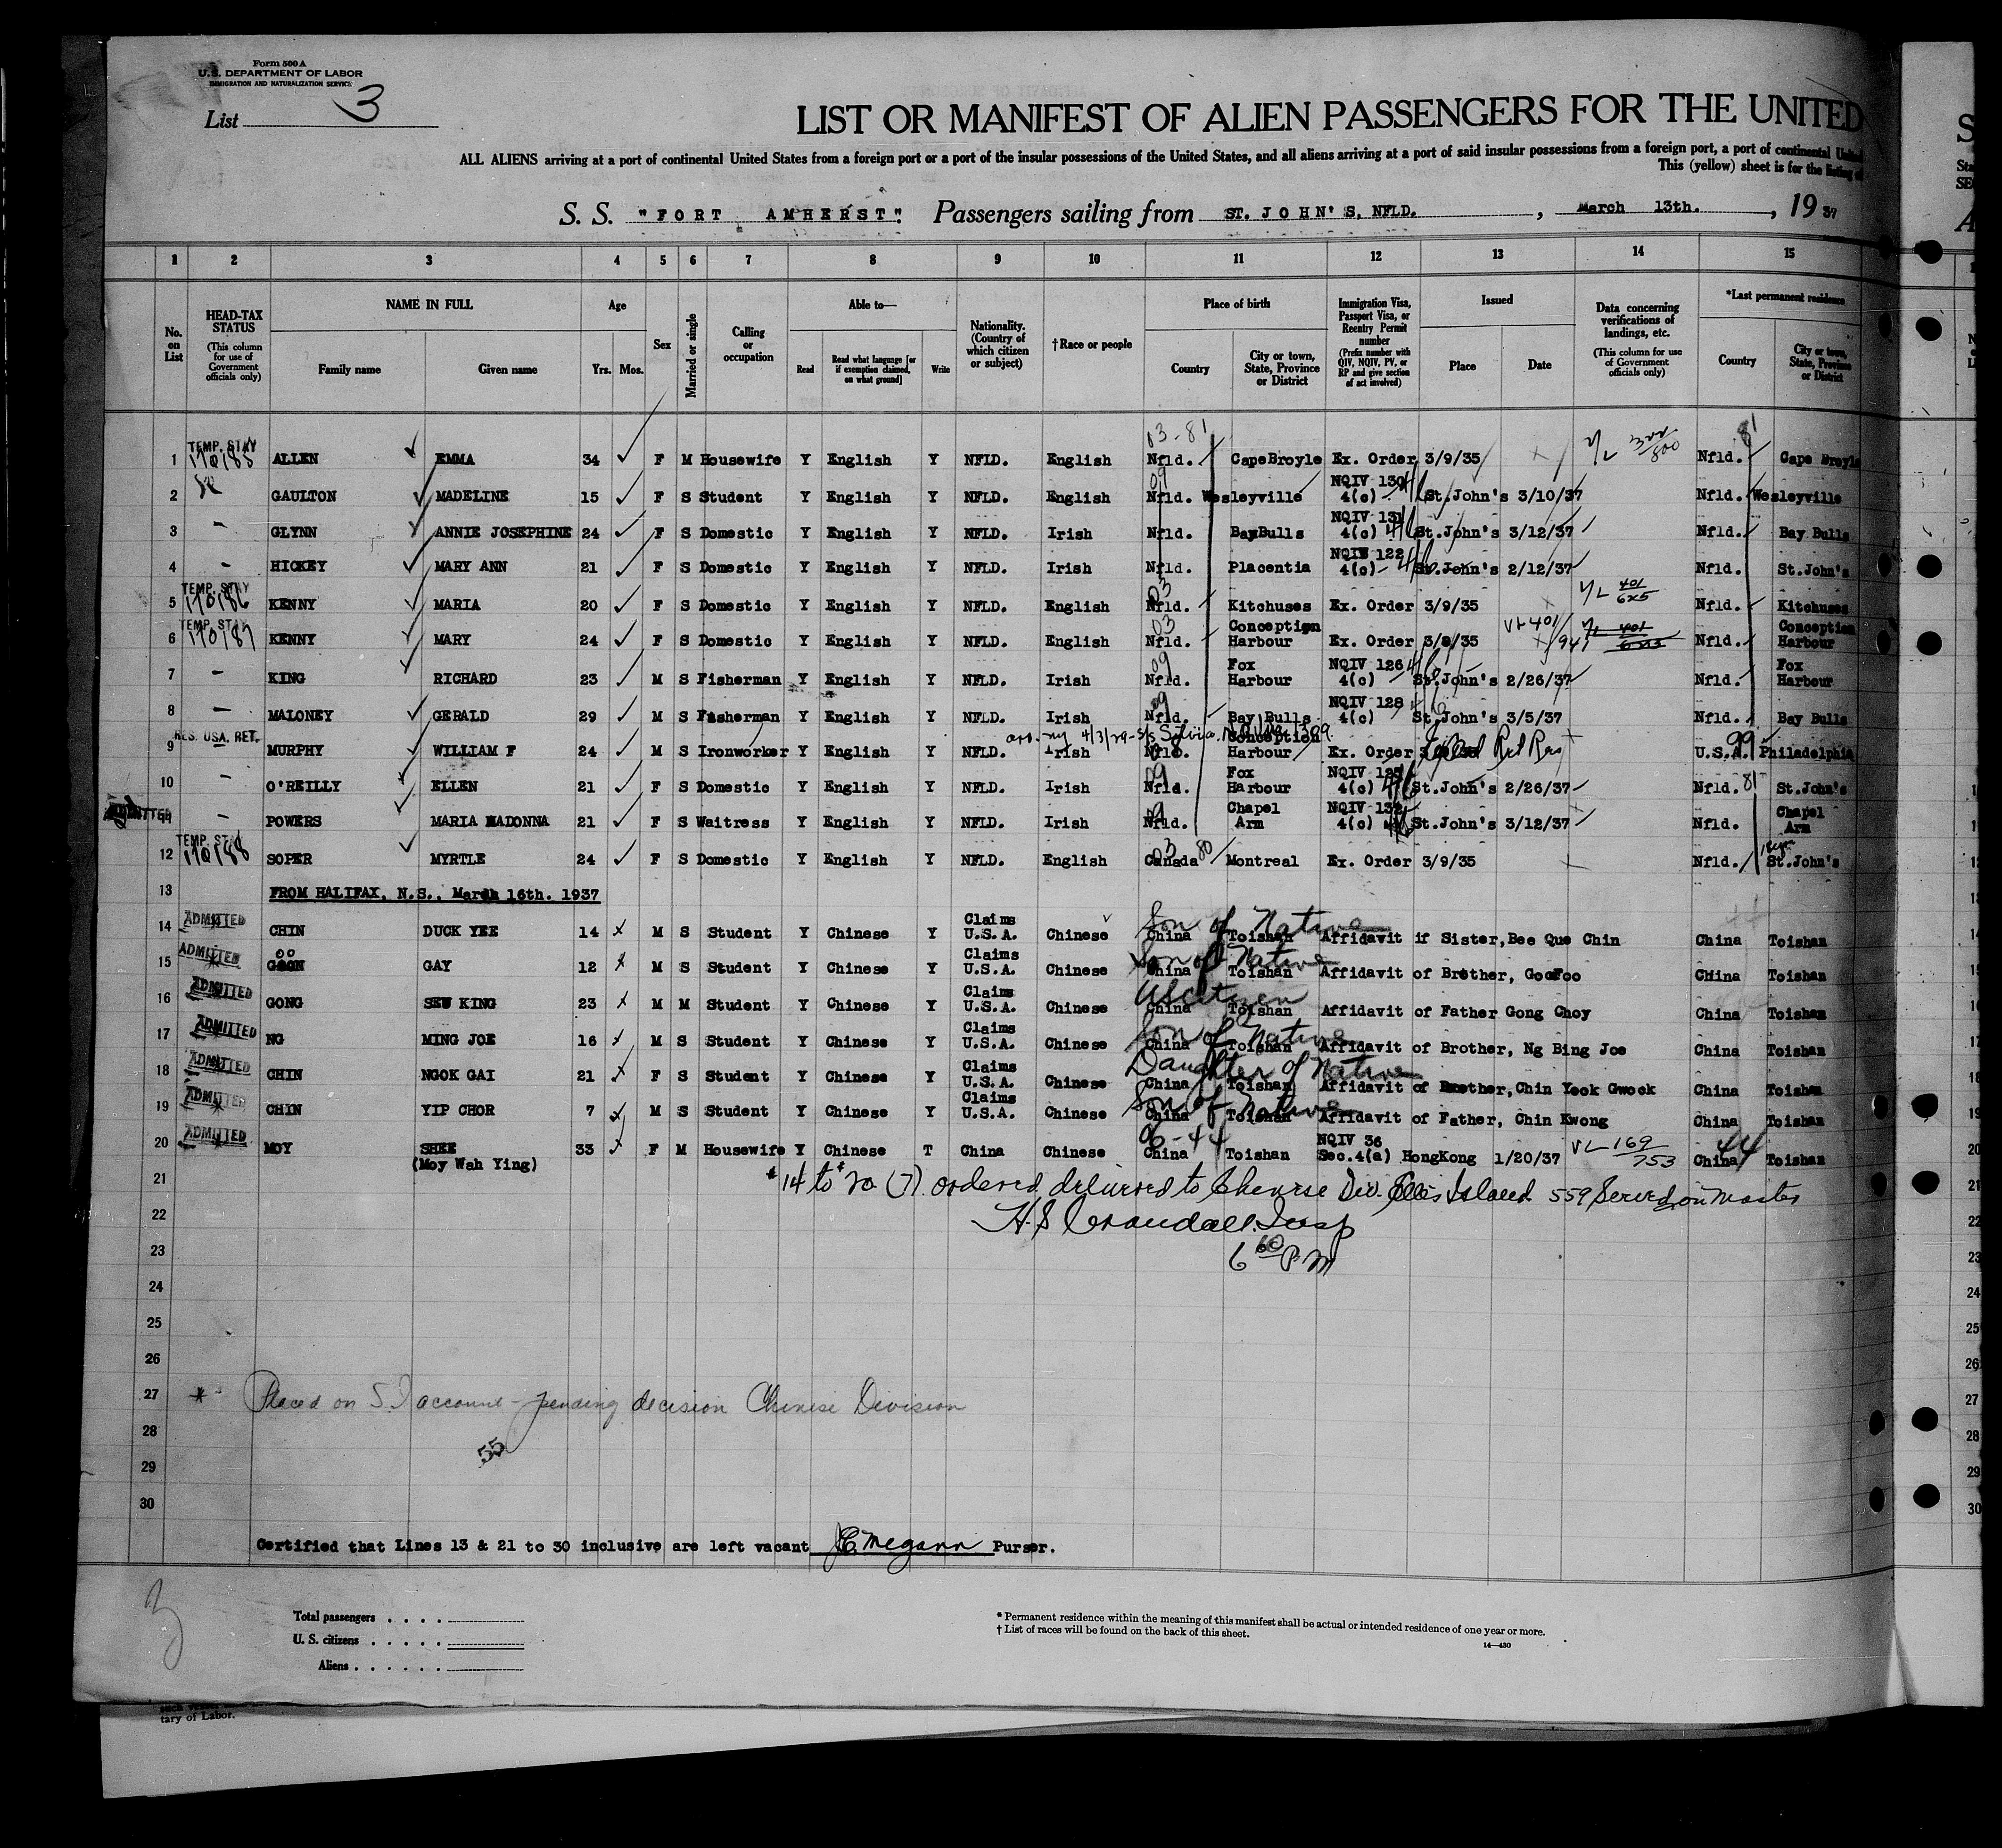 Form 500 A
U.S. DEPARTMENT OF LABOR
IMMIGRATION AND NATURALIZATION SERVICE
List 3
LIST OR MANIFEST OF ALIEN PASSENGERS FOR THE UNITED
ALL ALIENS arriving at a port of continental United States from a foreign port or a port of the insular possessions of the United States, and all aliens arriving at a port of said insular possessions from a foreign port, a port of continental
This (yellow) sheet is for the listing
S. S. "FORT AMHERST". Passengers sailing from ST. JOHN'S, NFLD. , March 13th. , 19 37
1 2 3 4 5 6 7 8 9 10 11 12 13 14 15
No. on List
HEAD-TAX STATUS (This column for use of Government officials only)
NAME IN FULL Family name Given name
Age Yrs. Mos.
Sex
Married or single
Calling or occupation
Able to— Read Read what language [or if exemption claimed, on what ground] Write
Nationality. (Country of which citizen or subject)
†Race or people
Place of birth Country City or town, State, Province or District
Immigration Visa, Passport Visa, or Reentry Permit number (Prefix number with QIV, NQIV, PV, or RP and give section of act involved)
Issued Place Date
Data concerning verifications of landings, etc. (This column for use of Government officials only)
*Last permanent residence Country City or town, State, Province or District
03-81 81
1 TEMP. STAY 170185 ALLEN EMMA 34 F M Housewife Y English Y NFLD. English Nfld. CapeBroyle Ex. Order 3/9/35 Nfld. Cape Broyle
2 GAULTON MADELINE 15 F S Student Y English Y NFLD. English Nfld. Wesleyville NQIV 130 4(c) St.John's 3/10/37 Nfld. Wesleyville
3 - GLYNN ANNIE JOSEPHINE 24 F S Domestic Y English Y NFLD. Irish Nfld. BayBulls NQIV 131 4(c) St.John's 3/12/37 Nfld. Bay Bulls
4 - HICKEY MARY ANN 21 F S Domestic Y English Y NFLD. Irish Nfld. Placentia NQIV 122 4(c) St.John's 2/12/37 Nfld. St.John's
5 TEMP. STAY 170186 KENNY MARIA 20 F S Domestic Y English Y NFLD. English 03 Nfld. Kitchuses Ex. Order 3/9/35 VL 401/625 Nfld. Kitchuses
6 TEMP. STAY 170187 KENNY MARY 24 F S Domestic Y English Y NFLD. English 03 Nfld. Conception Harbour Ex. Order 3/9/35 VL 401/947 Nfld. Conception Harbour
7 - KING RICHARD 23 M S Fisherman Y English Y NFLD. Irish 09 Nfld. Fox Harbour NQIV 126 4(c) St.John's 2/26/37 Nfld. Fox Harbour
8 - MALONEY GERALD 29 M S Fisherman Y English Y NFLD. Irish 09 Nfld. Bay Bulls NQIV 128 4(c) St.John's 3/5/37 Nfld. Bay Bulls
9 RES. USA. RET. MURPHY WILLIAM F 24 M S Ironworker Y English Y NFLD. Irish Nfld. Conception Harbour Ex. Order U.S.A. 99 Philadelphia
10 - O'REILLY ELLEN 21 F S Domestic Y English Y NFLD. Irish 09 Nfld. Fox Harbour NQIV 125 4(c) St.John's 2/26/37 Nfld. 81 St.John's
11 ADMITTED - POWERS MARIA MADONNA 21 F S Waitress Y English Y NFLD. Irish 09 Nfld. Chapel Arm NQIV 132 4(c) St.John's 3/12/37 Nfld. Chapel Arm
12 TEMP. STAY 170188 SOPER MYRTLE 24 F S Domestic Y English Y NFLD. English 03 Canada 80 Montreal Ex. Order 3/9/35 Nfld. St.John's
13 FROM HALIFAX, N.S., March 16th. 1937
14 ADMITTED CHIN DUCK YEE 14 M S Student Y Chinese Y Claims U.S.A. Chinese Son of Native China Toishan Affidavit if Sister,Bee Que Chin China Toishan
15 ADMITTED GOON GAY 12 M S Student Y Chinese Y Claims U.S.A. Chinese Son of Native China Toishan Affidavit of Brother, GooFoo China Toishan
16 ADMITTED GONG SEW KING 23 M M Student Y Chinese Y Claims U.S.A. Chinese US Citizen China Toishan Affidavit of Father Gong Choy China Toishan
17 ADMITTED NG MING JOE 16 M S Student Y Chinese Y Claims U.S.A. Chinese Son of Native China Toishan Affidavit of Brother, Ng Bing Joe China Toishan
18 ADMITTED CHIN NGOK GAI 21 F S Student Y Chinese Y Claims U.S.A. Chinese Daughter of Native China Toishan Affidavit of Brother,Chin Yeok Gwock China Toishan
19 ADMITTED CHIN YIP CHOR 7 M S Student Y Chinese Y Claims U.S.A. Chinese Son of Native China Toishan Affidavit of Father, Chin Kwong China Toishan
20 ADMITTED MOY SHEE (Moy Wah Ying) 33 F M Housewife Y Chinese T China Chinese China Toishan NQIV 36 Sec.4(a) HongKong 1/20/37 VL 169/753 China 44 Toishan
21 * 14 to 20 (7) ordered delivered to Chinese Div. Ellis Island 559 Served on Master
22 H.S. Crandall. Insp
23 P.M
24
25
26
27 * Placed on S.I account - pending decision Chinese Division
28 55
29
30
Certified that Lines 13 & 21 to 30 inclusive are left vacant Purser.
3
Total passengers . . . .
U. S. citizens . . . . .
Aliens . . . . . .
* Permanent residence within the meaning of this manifest shall be actual or intended residence of one year or more.
† List of races will be found on the back of this sheet.
14—430
tary of Labor.